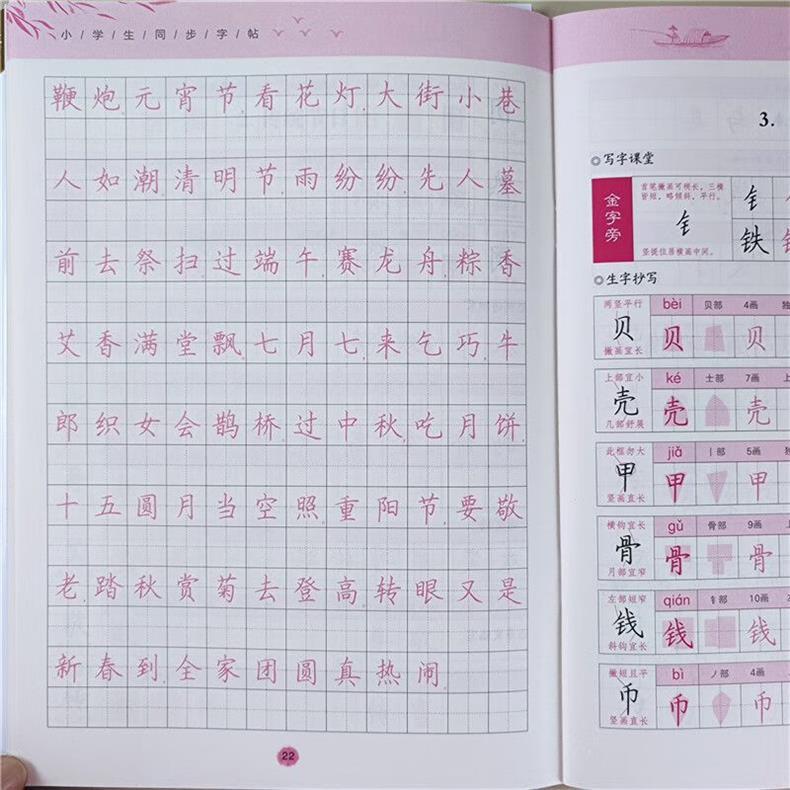 小/学/生/同/步/字/帖
鞭炮元宵节看花灯，大街小巷
人如潮。清明节雨纷纷，先人墓
前去祭扫。过端午，赛龙舟，粽香
艾香满堂飘。七月七，来乞巧，牛
郎织女会鹊桥。过中秋，吃月饼，
十五圆月当空照。重阳节，要敬
老，踏秋赏菊去登高。转眼又是
新春到，全家团圆真热闹。
22
3.
写字课堂
金字旁
首笔撇画可稍长，三横
皆短，略倾斜，平行。
钅
竖提位居横画中间。
钅
铁
生字抄写
两竖平行
贝
撇画宜长
bèi 贝部 4画 独
贝 贝
上部宜小
壳
几部舒展
ké 士部 7画 上
壳 壳
此框勿大
甲
竖画直长
jiǎ 丨部 5画 独
甲 甲
横钩宜长
骨
月部宜窄
gǔ 骨部 9画 上
骨 骨
左部短窄
钱
斜钩宜长
qián 钅部 10画
钱 钱
撇短且平
币
竖画直长
bì 丿部 4画
币 币